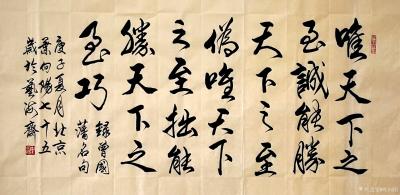 唯天下之
至誠能勝
天下之至
偽唯天下
之至拙能
勝天下之
至巧
錄曾國
藩名句
庚子夏月北京
葉向陽七十五
歲於藝海齋